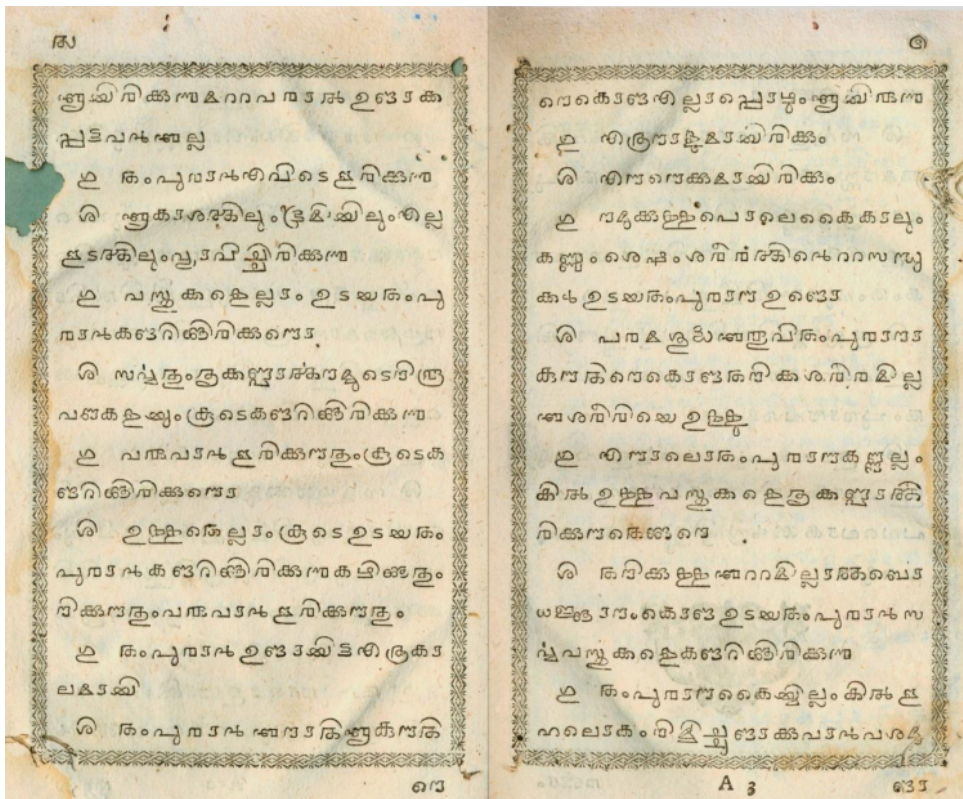 ൪
ആയിരിക്കുന്നമററവരാൽ ഉണ്ടാക്ക
പ്പട്ടവൻഅല്ല
ഗു തംപുരാൻഎവിടെഇരിക്കുന്നു
ശി ആകാശത്തിലുംഭൂമിയിലുംഎല്ല
ഇടത്തിലുംവ്യാപിച്ചിരിക്കുന്നു
ഗു വസ്തുക്കളെല്ലാം ഉടയതംപു
രാൻകണ്ടറിഞ്ഞിരിക്കുന്നൊ
ശി സൎവ്വതുംതൃക്കൺപാൎത്തനമുടെനിരൂ
പണകളയുംകൂടെകണ്ടറിഞ്ഞിരിക്കുന്നു
ഗു വരുവാൻഇരിക്കുന്നതുംകൂടെക
ണ്ടറിഞ്ഞിരിക്കുന്നൊ
ശി ഉള്ളതെല്ലാംകൂടെ ഉടയതം
പുരാൻകണ്ടറിഞ്ഞിരിക്കുന്നുകഴിഞ്ഞതും
രിക്കുന്നതുംവരുവാൻഇരിക്കുന്നതും
ഗു തംപുരാൻ ഉണ്ടായിട്ടഎത്രകാ
ലമായി
ശി തംപുരാൻ അനാദിആകുന്നതി
നെ
൫
നെകൊണ്ടഎല്ലാപ്പൊഴുംആയിരുന്നു
ഗു എത്രനാളുമായിരിക്കും
ശി എന്നെന്നെക്കുമായിരിക്കും
ഗു നമുക്കുള്ളപൊലെകൈകാലും
കണ്ണുംശെഷംശരീരത്തിന്റെവസ്തു
ക്കൾ ഉടയതംപുരാന്ന ഉണ്ടൊ
ശി പരമശുദ്ധഅരൂപിതംപുരാനാ
കുന്നതിനെകൊണ്ടതനിക്കശരീരമില്ല
അശരീരിയെ ഉള്ളു
ഗു എന്നാലൊതംപുരാന്നകണ്ണില്ലം
കിൽ ഉള്ളവസ്തുക്കളെതൃക്കൺപാൎത്തി
രിക്കുന്നതെങ്ങനെ
ശി തനിക്കുള്ളഅററമില്ലാത്തബൊ
ധജ്ഞാനംകൊണ്ട ഉടയതംപുരാൻ സ
ൎവ്വവസ്തുക്കളെകണ്ടറിഞ്ഞിരിക്കുന്നു
ഗു തംപുരാന്നകൈയ്യില്ലംകിൽ ഇ
ഹലൊകംനിൎമ്മിച്ചുണ്ടാക്കുവാൻവശമു
A 3 ണ്ടൊ